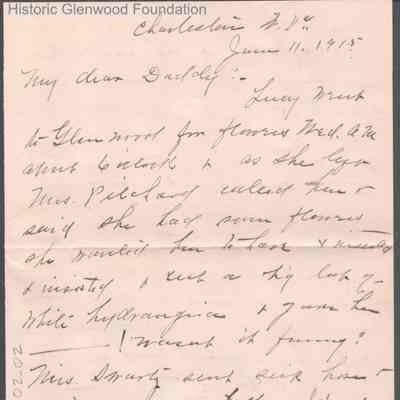 Historic Glenwood Foundation
Charleston W. Va
June 11, 1915
My dear Daddy:-
Lucy went
to Glenwood for flowers Wed. a.m.
about 6 o'clock & as she left
Mrs. Pilchard called her &
said she had some flowers
she wanted her to have & insisted
& insisted & cut a big lot of
white hydrangeas & gave her
! Wasn't it funny?
Mrs. Swartz sent
02.02